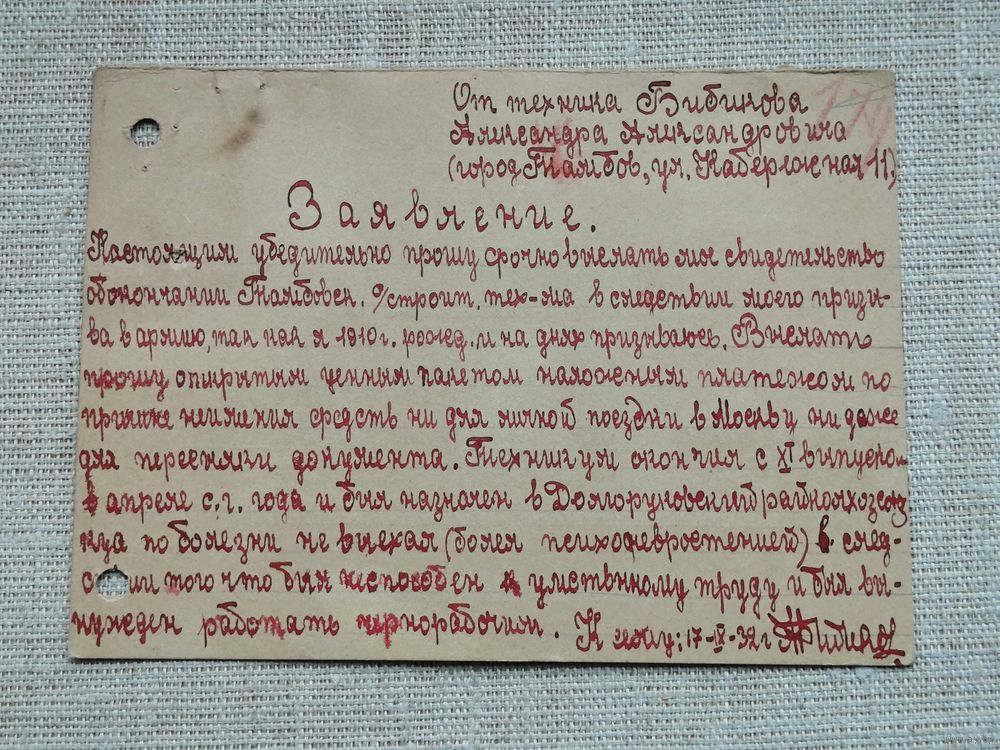 От техника Бибикова
Александра Александровича
(город Тамбов, ул. Набережная 11)
Заявление.
Настоящим убедительно прошу срочно выслать мне свидетельство
об окончании Тамбовск. с/строит. тех-ма в следствии моего призы-
ва в армию, так как я 1910 г. рожд. и на днях призываюсь. Выслать
прошу открытым ценным пакетом наложенным платежом по
причине неимения средств ни для личной поездки в Москву ни даже
для пересылки документа. Техникум окончил с XI выпуском
в апреле с.г. года и был назначен в Долгоруковский райколхозсоюз
куда по болезни не выехал (болел психоневростенией) в след-
ствии того что был неспособен к умственному труду и был вы-
нужден работать чернорабочим. К сему: 17-IX-32 г